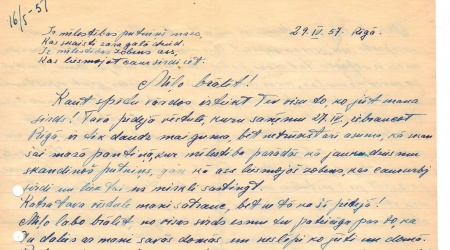 16/5-57
Ir mīlestības putniņš mazs,
Kas skaisti zara galā dzied.
Ir mīlestības zobens ass,
Kas liesmojot caur sirdi iet.
29. IV. 57. Rīgā.
Mīļo brālīt!
Kaut spētu vārdos izteikt Tev visu to, ko jūt mana
sirds! Tavā pēdējā vēstulē, kuru saņēmu 27. IV, iebraucot
Rīgā, ir tik daudz maiguma, bet netrūkst arī asuma, kā man
šai mazā pantiņā, kur mīlestība parādās kā jauku dziesmu
skandinošs putniņš, gan kā ass liesmojošs zobens, kas caururbj
sirdi un liek tai uz mirkli sastingt.
Katra Tava vēstule mani satrauc, bet ne tā kā šī pēdējā!
Mīļo labo brālīt, no visas sirds esmu Tev pateicīga par to, ka
Tu dalies ar mani savās domās un neslēp ko jūti un domā.